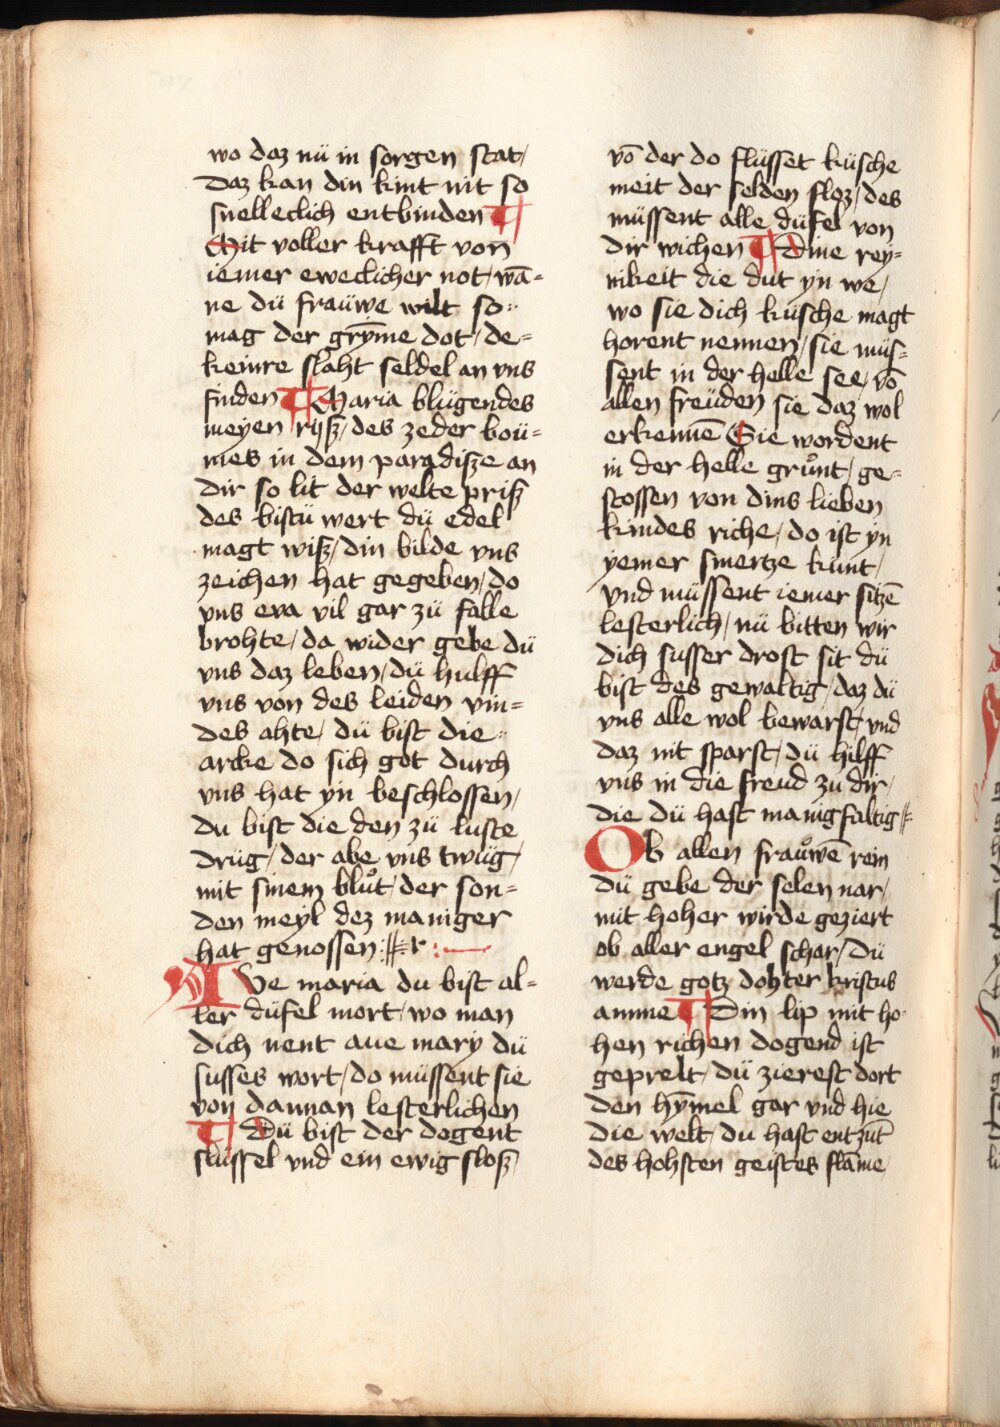 wo daz nü in sorgen stat/
Daz kan din kint nit so
snelleclich entbinden ¶
Mit voller krafft von
iemer eweclicher not/ wā=
ne dü fraüwe wilt so=
mag der grȳme dot/ de=
keinre slaht seldel an vns
finden ¶ Maria blügendes
meyen rijß/ des zeder boü=
mes in dem paradisze an
dir so lit der welte priß
des bistü wert dü edel
magt wiß/ din bilde vns
zeichen hat gegeben/ do
vns eva vil gar zü falle
brohte/ da wider gebe dü
vns daz leben/ dü hulff
vns von des leiden vin=
des ahte/ dü bist die=
arcke do sich got durch
vns hat yn beschlossen/
du bist die den zü luste
drüg/ der abe vns twüg/
mit sinem bluͦt/ der son=
den meyl dez maniger
hat genossen r
AVe maria du bist al=
ler düfel mort/ wo man
dich nent aue mary dü
susses wort/ do müssent sie
von dannan lesterlichen
¶ Dü bist der dogent
slüssel vnd ein ewig sloß/
vō der do flüsset küsche
meit der selden floz/ des
müssent alle düfel von
dir wichen ¶ Dine rey=
nikeit die dut yn we/
wo sie dich küsche magt
horent nennen/ sie müs=
sent in der helle see/ vō
allen freüden sie daz wol
erkennē Sie wordent
in der helle gruͦnt/ ge=
stossen von dins lieben
kindes riche/ do ist yn
yemer smertze kunt/
vnd müssent iemer sitzē
lesterlich/ nü bitten wir
dich susser drost sit dü
bist des gewaltig/ daz dü
vns alle wol bewarst/ vnd
daz nit sparst/ dü hilff
vns in die freud zu dir/
die dü hast manigfaltig
Ob allen frauͦwē rein
dü gebe der selen nar/
mit hoher wirde geziert
ob aller engel schar/ Dü
werde gotz dohter kristus
amme ¶ Din lip mit ho=
hen richen dogend ist
geprelt/ dü zierest dort
den hȳmel gar vnd hie
die welt/ du hast entzūt
des hohsten geistes flāme/